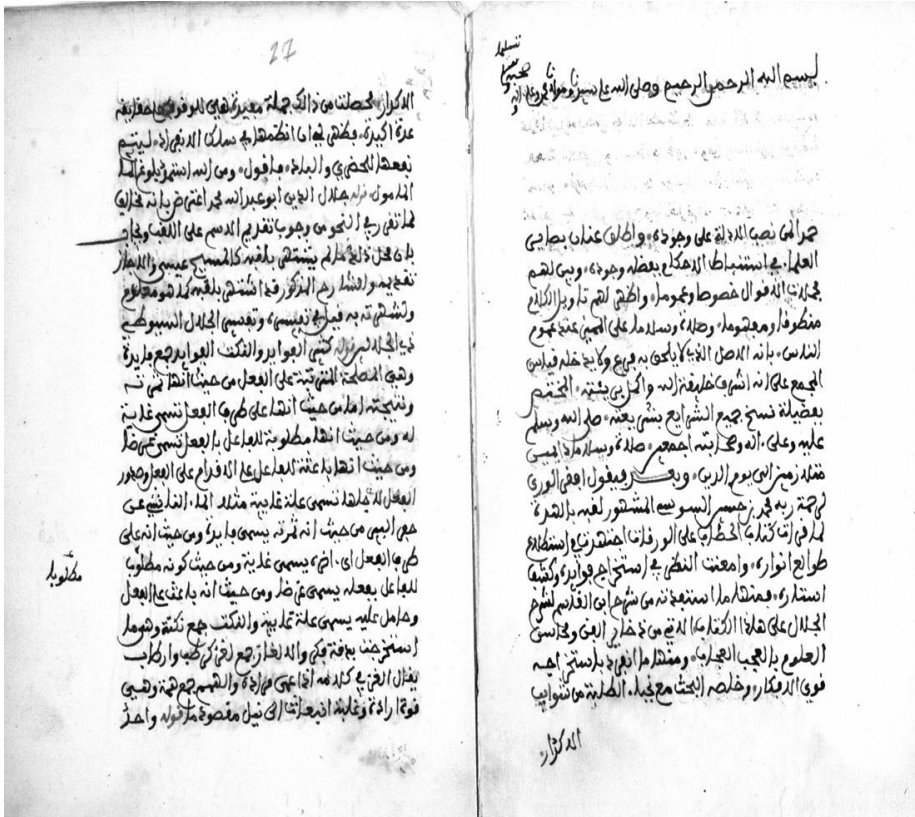 بسم الله الرحمن الرحيم وصلى الله على سيدنا ومولانا محمد وعلى اله
وصحبه وسلم
تسليما
حمدا لمن نصب الادلة على وجوده، واطلق عنان بصاير
العلماء في استنباط الاحكام بفضله وجوده، وبين لهم
مجملات الاقوال خصوصا وعموما، واظهر لهم تاويل الكلام
منطوقا ومفهوما، وصلاة وسلاما على المبين عنه عموم
الناس، بانه الاصل الذي لا يلحق به فرع ولا يدخله قياس
المجمع على انه اشرف خليقة الله واكمل بريته، المختص
بفضيلة نسخ جميع الشرايع بشريعته، صلى الله وسلم
عليه وعلى اله وصحابته اجمعين صلاة وسلاما دايمين
متلازمين الى يوم الدين، وبعد فيقول افقر الورى
لرحمة ربه محمد بن حسين السوسي المشهور لقبه بالهدة
لما قرات كتاب الحطاب على الورقات واستطلاع
طوالع انواره، وامعنت النظر في استخراج فوايده وكشف
استاره، فمنها ما استفدته من شرح ابن القاسم لشرح
الجلال على هذا الكتاب الاتي من ذخاير الفن ومحاسن
العلوم بالعجب العجاب، ومنها ما انفرد باستخراجه
قوي الافكار، وخلصه البحث مع نجباء الطلبة من شوايب
الاكدار،
27
الاكدار، فحصلت من ذالك جملة هي للوقوف على حقايقه
عدة اكيدة، فظهر لي ان انظمها في سلك الانفراد، ليتم
نفعها للحضري والباد، فاقول، ومن الله استمد بلوغ
المامول، قوله جلال الدين ابو عبد الله محمد اعترض بانه مخالف
لما تقرر في النحو من وجوب تقديم الاسم على اللقب
بان محل ذلك ما لم يشتهر بلقبه كالمسيح عيسى والا جاز
تقديمه والشارح المذكور قد اشتهر بلقبه كما هو معلوم
ولشهرته به قيل في تفسيره وتفسير الجلال السيوطي
تفسير الجلالين قوله كثير الفوايد والنكت الفوايد جمع فايدة
وهي المصلحة المترتبة على الفعل من حيث انها ثمرته
ونتيجته اما من حيث انها على طرف الفعل تسمى غاية
له ومن حيث انها مطلوبة للفاعل بالفعل تسمى غرضا
ومن حيث انها باعثة للفاعل على الاقدام على الفعل وصدور
الفعل لاجلها تسمى علة غايية مثلا الماء الناشئ عن
حفر البير من حيث انه ثمرته يسمى فايدة ومن حيث انه على
طرف الفعل اي اخره يسمى غاية ومن حيث كونه مطلوبا
للفاعل بفعله يسمى غرضا ومن حيث انه باعث على الفعل
وحامل عليه يسمى علة غايية والنكت جمع نكتة وهو ما
استخرجت بدقة فكر والالغاز جمع لغز كرطب وارطاب
يقال الغز في كلامه اذا عمى مراده والهمم جمع همة وهي
قوة ارادة وغلبة انبعاث الى نيل مقصود ما قوله واحد
مطلوبا